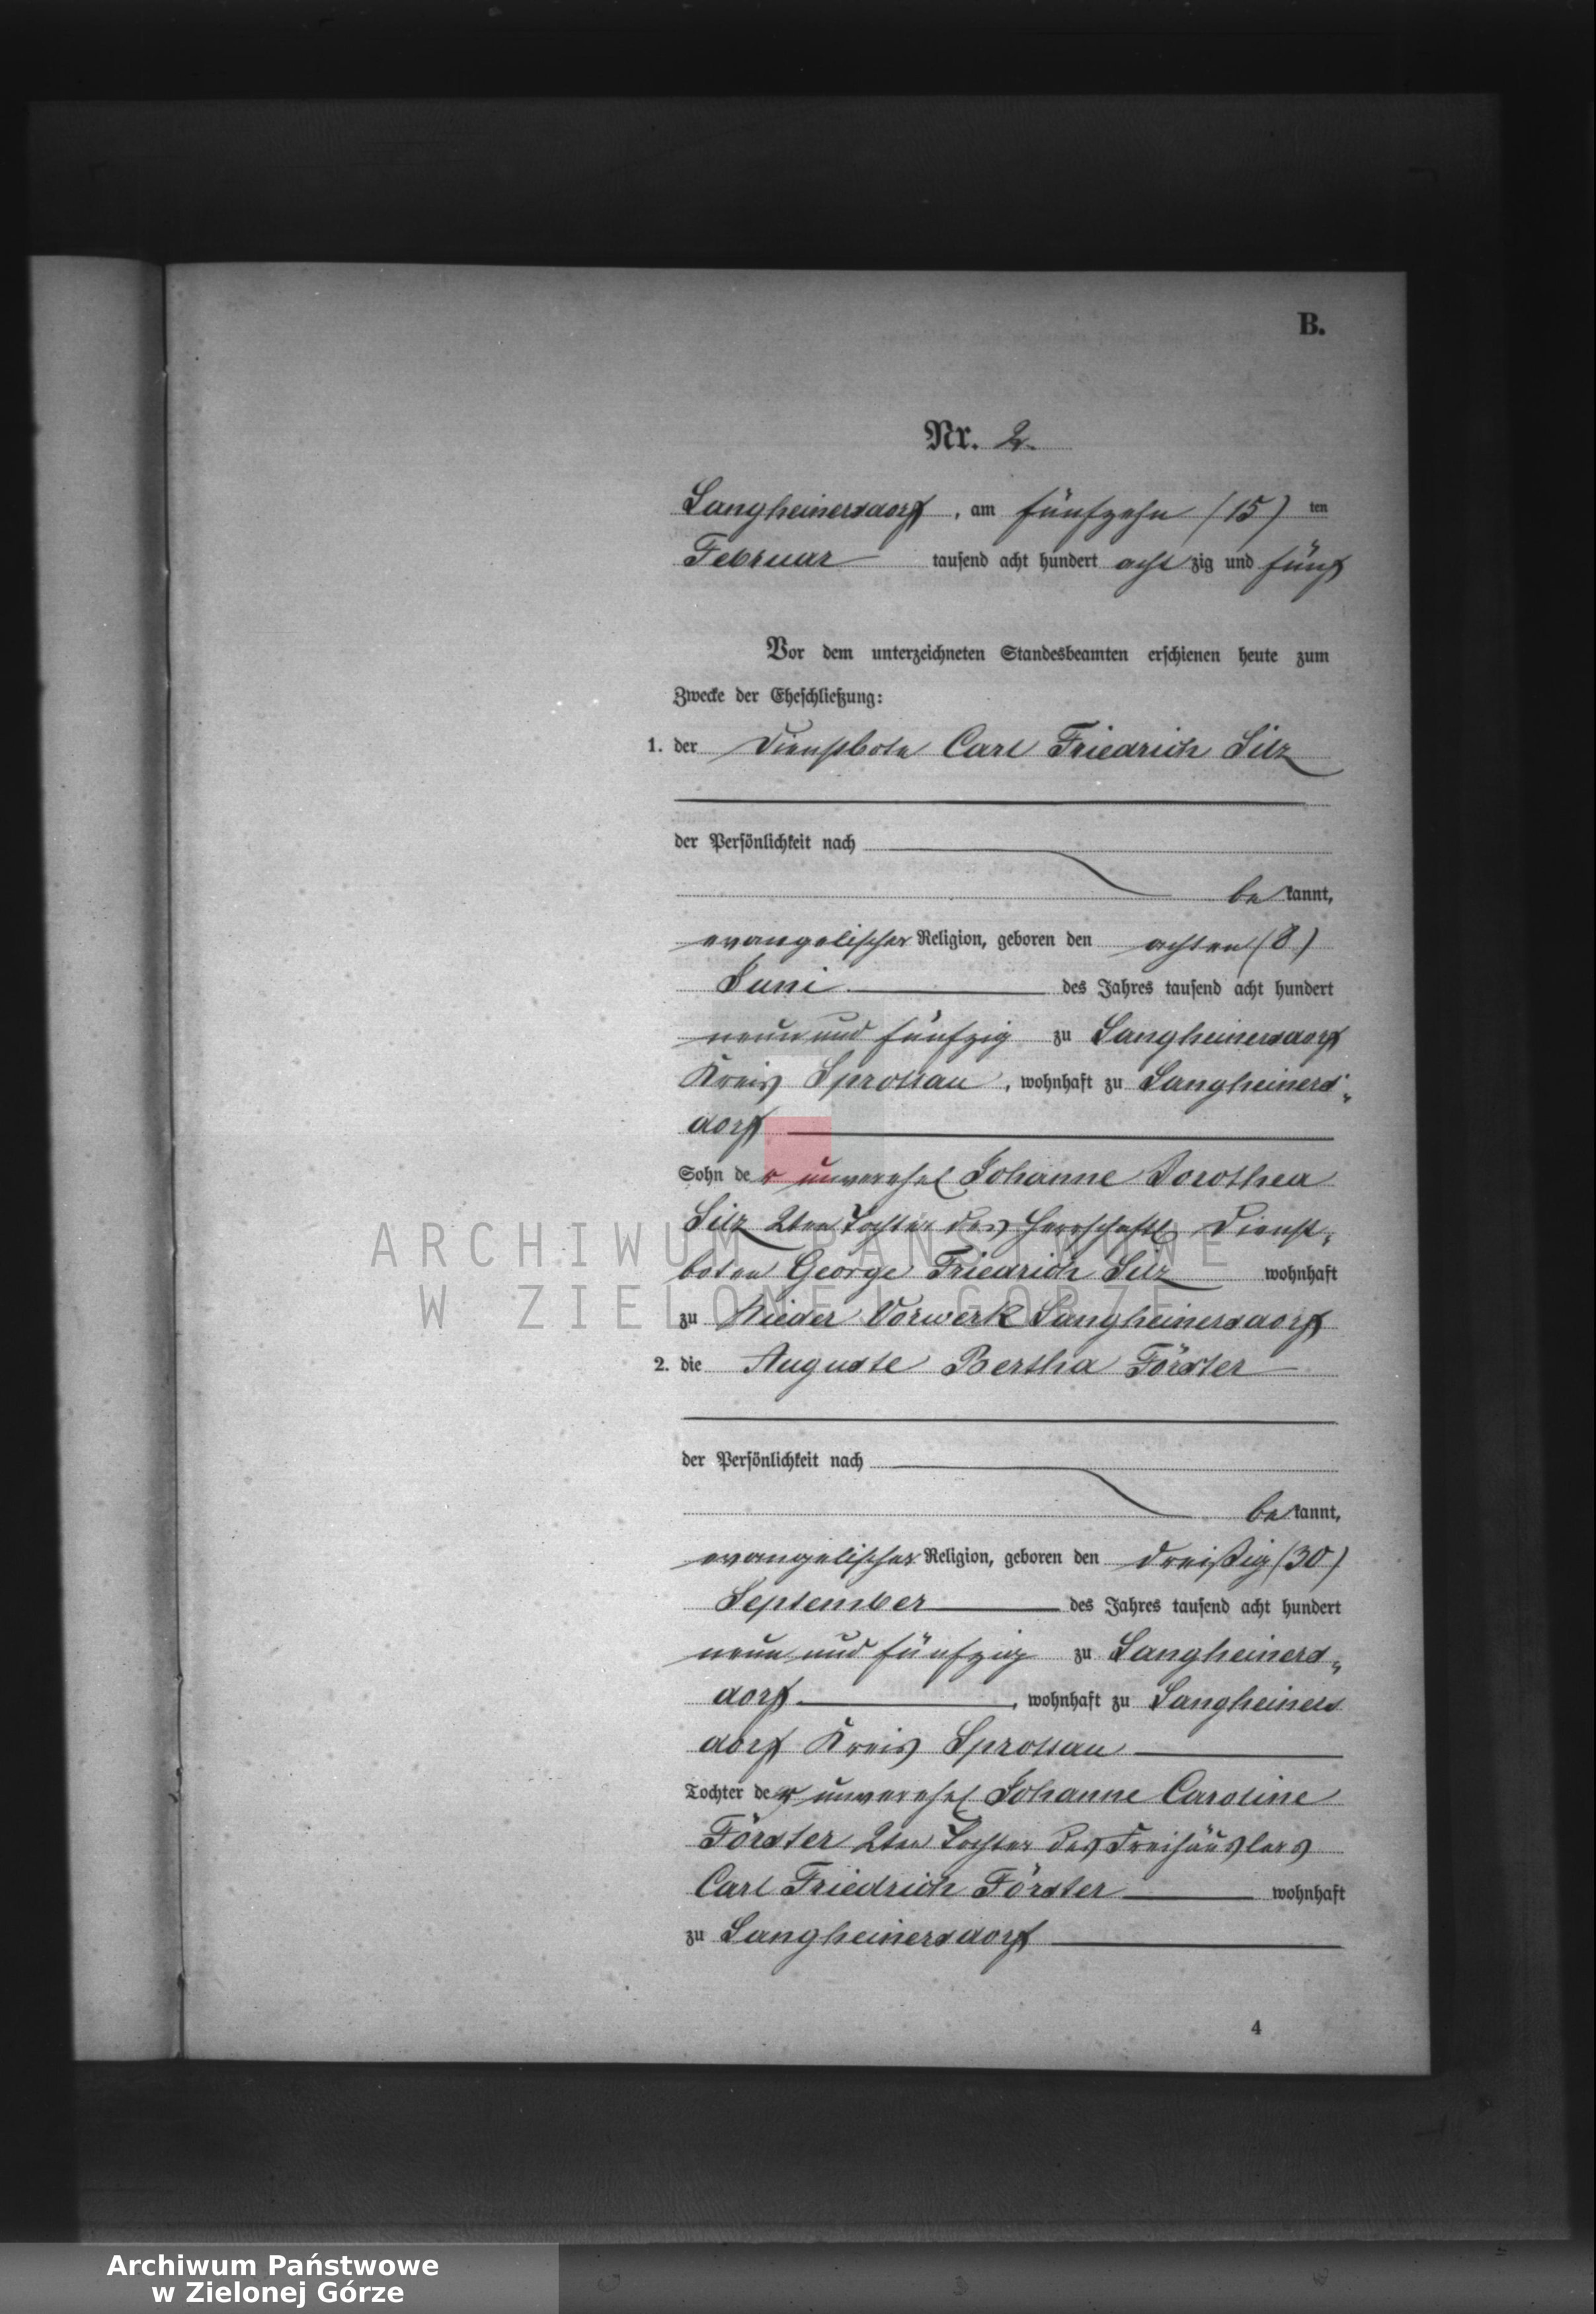 B.
Nr. 2.
Langheinersdorf, am fünfzehn (15) ten
Februar tausend acht hundert acht zig und fünf
Vor dem unterzeichneten Standesbeamten erschienen heute zum
Zwecke der Eheschließung:
1. der Dienstbote Carl Friedrich Silz
der Persönlichkeit nach
be kannt,
evangelischer Religion, geboren den achten (8)
Juni des Jahres tausend acht hundert
neun und fünfzig zu Langheinersdorf
Kreis Sprottau, wohnhaft zu Langheiners„
dorf
Sohn der unverehel Johanne Dorothea
Silz 2ten Tochter des herrschaftl Dienst„
boten George Friedrich Silz wohnhaft
zu Nieder Vorwerk Langheinersdorf
2. die Auguste Bertha Förster
der Persönlichkeit nach
be kannt,
evangelischer Religion, geboren den dreißig (30)
September des Jahres tausend acht hundert
neun und fünfzig zu Langheiners„
dorf, wohnhaft zu Langheiners
dorf Kreis Sprottau
Tochter der unverehel Johanne Caroline
Förster 2ten Tochter des Freihäuslers
Carl Friedrich Förster wohnhaft
zu Langheinersdorf
4
ARCHIWUM PAŃSTWOWE
W ZIELONEJ GÓRZE
Archiwum Państwowe
w Zielonej Górze